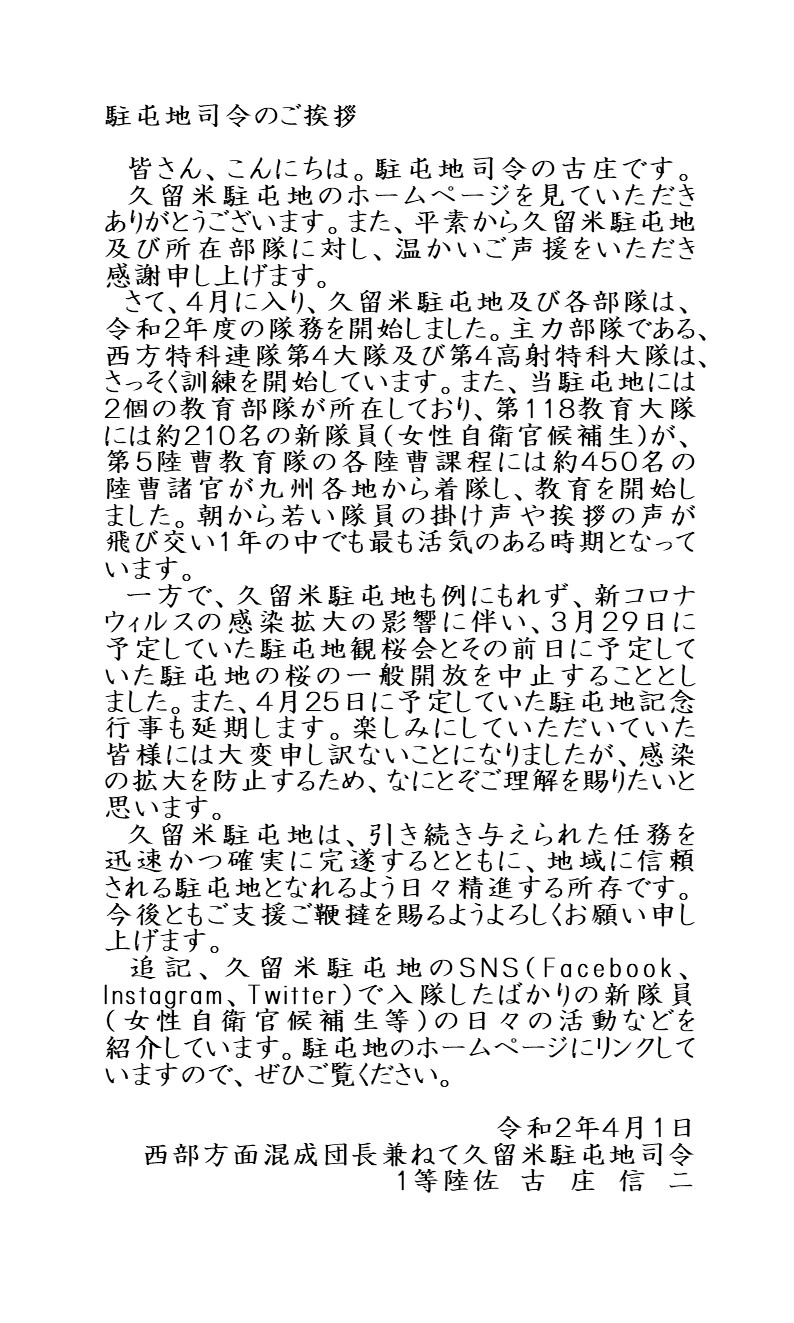 駐屯地司令のご挨拶
皆さん、こんにちは。駐屯地司令の古庄です。
久留米駐屯地のホームページを見ていただき
ありがとうございます。また、平素から久留米駐屯地
及び所在部隊に対し、温かいご声援をいただき
感謝申し上げます。
さて、4月に入り、久留米駐屯地及び各部隊は、
令和2年度の隊務を開始しました。主力部隊である、
西方特科連隊第4大隊及び第4高射特科大隊は、
さっそく訓練を開始しています。また、当駐屯地には
2個の教育部隊が所在しており、第118教育大隊
には約210名の新隊員(女性自衛官候補生)が、
第5陸曹教育隊の各陸曹課程には約450名の
陸曹諸官が九州各地から着隊し、教育を開始し
ました。朝から若い隊員の掛け声や挨拶の声が
飛び交い1年の中でも最も活気のある時期となって
います。
一方で、久留米駐屯地も例にもれず、新コロナ
ウィルスの感染拡大の影響に伴い、3月29日に
予定していた駐屯地観桜会とその前日に予定して
いた駐屯地の桜の一般開放を中止することとし
ました。また、4月25日に予定していた駐屯地記念
行事も延期します。楽しみにしていただいていた
皆様には大変申し訳ないことになりましたが、感染
の拡大を防止するため、なにとぞご理解を賜りたいと
思います。
久留米駐屯地は、引き続き与えられた任務を
迅速かつ確実に完遂するとともに、地域に信頼
される駐屯地となれるよう日々精進する所存です。
今後ともご支援ご鞭撻を賜るようよろしくお願い申し
上げます。
追記、久留米駐屯地のSNS(Facebook、
Instagram、Twitter)で入隊したばかりの新隊員
(女性自衛官候補生等)の日々の活動などを
紹介しています。駐屯地のホームページにリンクして
いますので、ぜひご覧ください。
令和2年4月1日
西部方面混成団長兼ねて久留米駐屯地司令
1等陸佐 古 庄 信 二